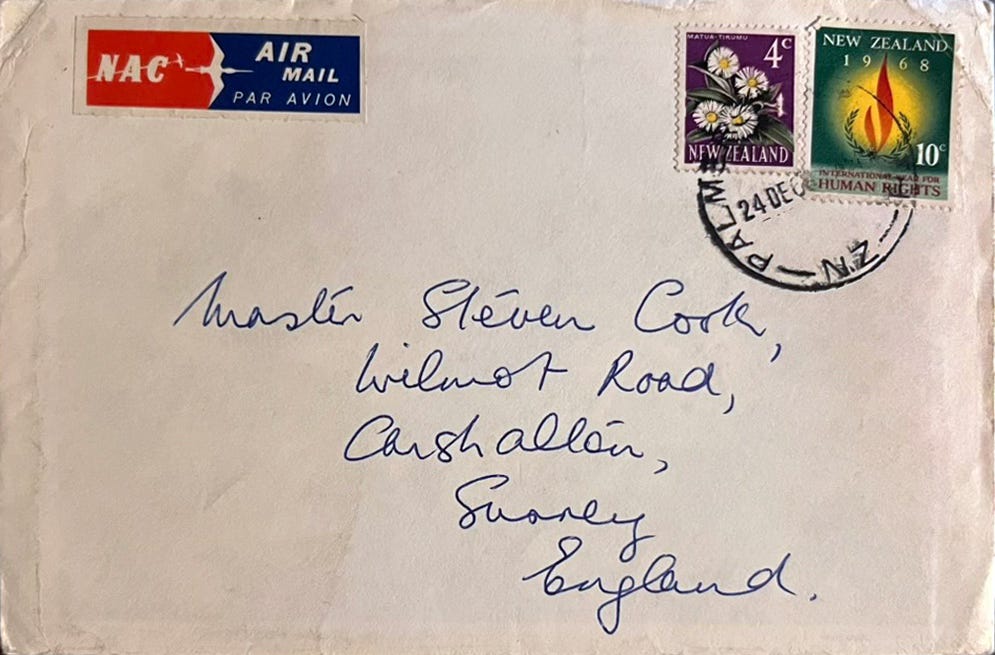 NAC AIR MAIL
PAR AVION
MATUA-TIKUMU
4c
NEW ZEALAND
NEW ZEALAND
1968
10c
INTERNATIONAL YEAR FOR
HUMAN RIGHTS
24 DEC
N.Z.
Master Steven Cook,
Wilmot Road,
Carshalton,
Surrey
England.